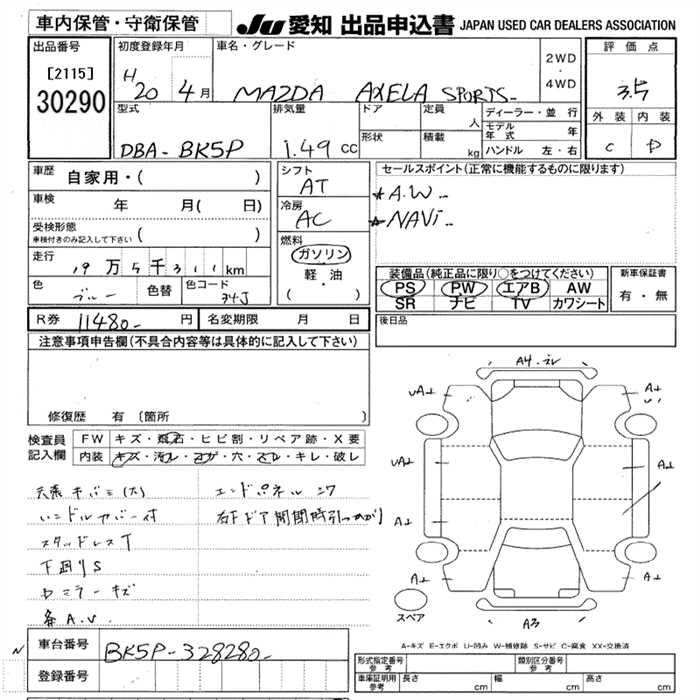 車内保管・守衛保管
JU 愛知 出品申込書 JAPAN USED CAR DEALERS ASSOCIATION
出品番号
[2115]
30290
初度登録年月
H20 4月
車名・グレード
MAZDA AXELA SPORTS
2WD
・
4WD
評価点
3.5
外装 内装
C D
型式
DBA-BK5P
排気量
1.49 CC
ドア
形状
定員
人
積載
kg
ディーラー・並行
モデル年式 年
ハンドル 左・右
車歴 自家用・( )
車検 年 月( 日)
受検形態 ( )
車検付きのみ記入して下さい
走行
19万5千311km
色 ブルー
色替
色コード
34J
シフト
AT
冷房
AC
燃料
ガソリン
・
軽・油
( ・ )
セールスポイント(正常に機能するものに限ります)
★A.W
★NAVi
装備品(純正品に限り○をつけてください)
PS PW エアB AW
SR ナビ TV カワシート
新車保証書
有・無
R券 11480- 円
名変期限 月 日
後日品
注意事項申告欄(不具合内容等は具体的に記入して下さい)
修復歴 有 〔箇所
検査員
記入欄
FW キズ・飛石・ヒビ割・リペア跡・X要
内装 キズ・汚レ・コゲ・穴・スレ・キレ・破レ
エンドパネル
右F ドア開閉時引っかかり
ハンドルカバー付
スタッドレスT
下廻りS
ミラーキズ
各A.U
A4
A3
スペア
A-キズ E-エクボ U-凹み W-補修跡 S-サビ C-腐食 XX-交換済
N
車台番号
BK5P-328280-
登録番号
形式指定番号 参考
類別区分番号 参考
車庫証明用 参考
長さ cm
幅 cm
高さ cm